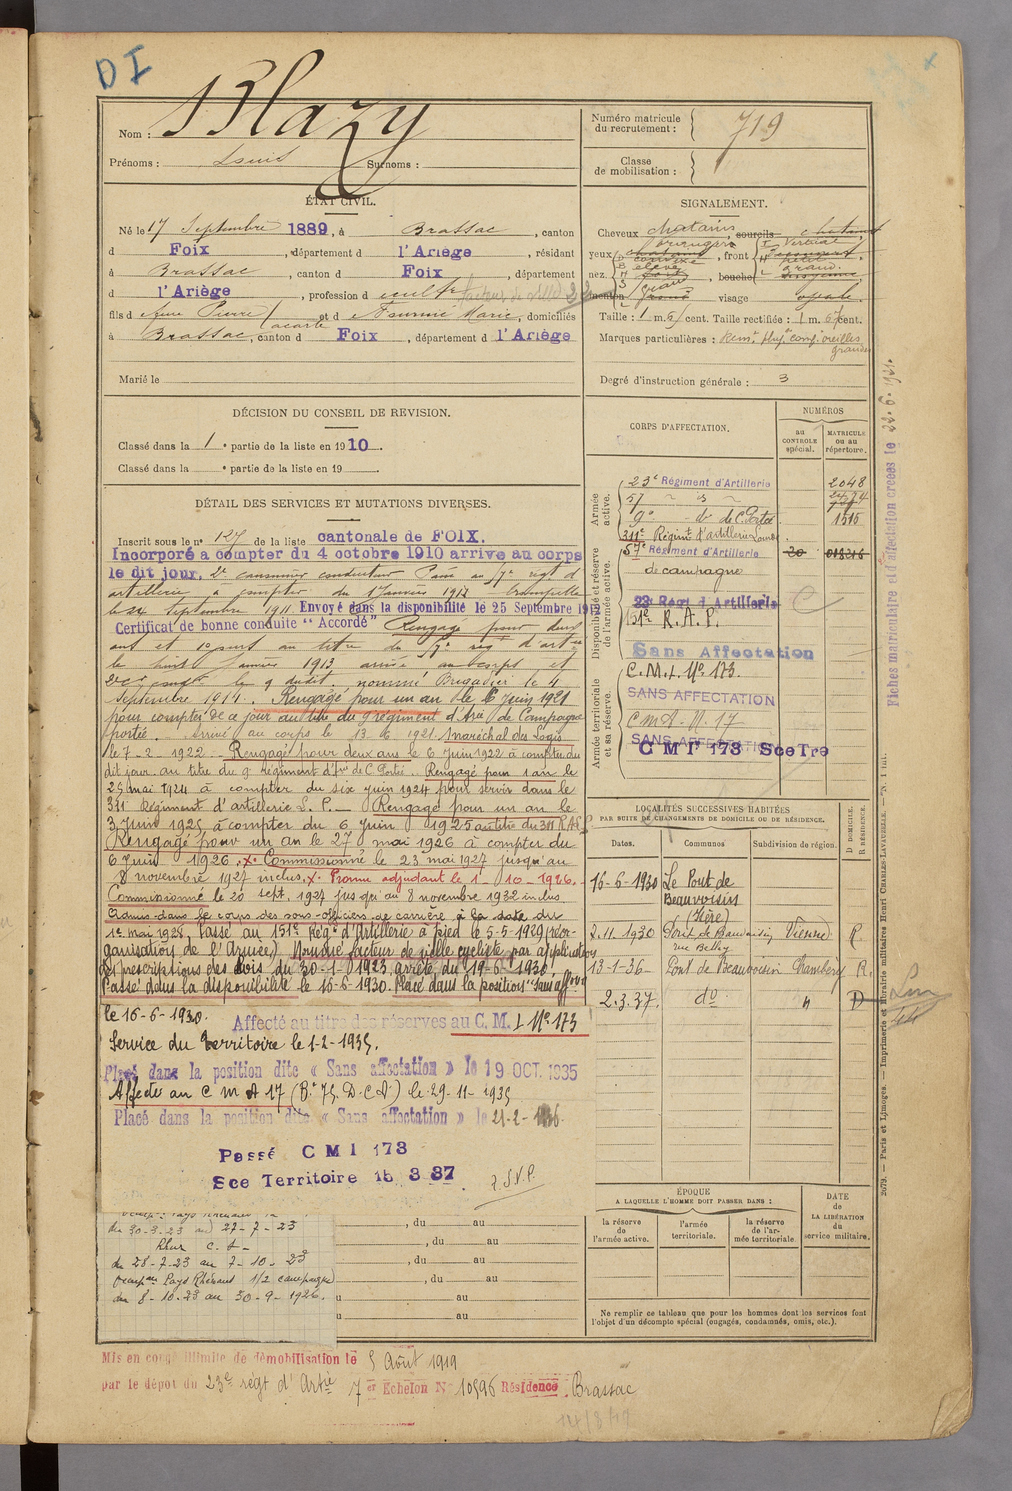 DI
Nom : Blazy
Prénoms : Louis Surnoms :
Numéro matricule du recrutement : 719
Classe de mobilisation :
ÉTAT CIVIL.
Né le 17 Septembre 1889, à Brassac, canton
d Foix, département d l'Ariège, résidant
à Brassac, canton d Foix, département
d l'Ariège, profession d cult facteur de ville
fils d Pierre et d Marie, domiciliés
à Brassac, canton d Foix, département d l'Ariège
Marié le
SIGNALEMENT.
Cheveux chatains, sourcils chatains
yeux, front vertical
nez, bouche
menton, visage ovale.
Taille : 1 m. cent. Taille rectifiée : 1 m. 67 cent.
Marques particulières : oreilles grandes
Degré d'instruction générale : 3
DÉCISION DU CONSEIL DE REVISION.
Classé dans la 1e partie de la liste en 1910.
Classé dans la e partie de la liste en 19
DÉTAIL DES SERVICES ET MUTATIONS DIVERSES.
Inscrit sous le n° 127 de la liste cantonale de FOIX.
Incorporé a compter du 4 octobre 1910 arrive au corps
le dit jour, 2e canonnier conducteur Passé au régt d
artillerie a compter du 1 Janvier 1911
le 24 Septembre 1911 Envoyé dans la disponibilité le 25 Septembre 1912
Certificat de bonne conduite "Accordé" Rengagé pour deux
ans et au titre du 9e rég d'artie
le huit Janvier 1913 arrivé au corps et
le 9 dudit. nommé Brigadier le 4
Septembre 1914. Rengagé pour un an le 6 Juin 1921
pour compter de ce jour au titre du 9 régiment d'Artie de Campagne
portée. Arrivé au corps le 13-6-1921. Maréchal des Logis
le 7-2-1922. Rengagé pour deux ans le 6 Juin 1922 à compter du
dit jour au titre du 9 Régiment d'Artie de C. Portée. Rengagé pour 1 an le
25 mai 1924 à compter du six juin 1924 pour servir dans le
311 Régiment d'artillerie L. P. — Rengagé pour un an le
3 Juin 1925 à compter du 6 Juin 1925 au titre du 311 R.A.L.P.
Rengagé pour un an le 27 mai 1926 à compter du
6 Juin 1926. x. Commissionné le 23 mai 1927 jusqu'au
8 novembre 1927 inclus. x. Promu adjudant le 1-10-1926.
Commissionné le 20 sept. 1927 jusqu'au 8 novembre 1932 inclus
Admis dans le corps des sous-officiers de carrière à la date du
1er mai 1928. Passé au 151e Régt d'Artillerie à pied le 5-5-1929 (réor-
ganisation de l'Armée). Nommé facteur de ville cycliste par application
des prescriptions des lois du 30-1-1923, arrêté du 19-6-1930.
Passé dans la disponibilité le 16-6-1930. Placé dans la position "Sans affon"
le 16-6-1930. Affecté au titre des réserves au C. M. I N° 173
Service du Territoire le 1-2-1935.
Placé dans la position dite « Sans affectation » le 19 OCT. 1935
Affecté au C M A 17 (Bie 75 D.C.A.) le 29-11-1935
Placé dans la position dite « Sans affectation » le 21-2-1936.
Passé C M I 173
Sce Territoire 15 3 37
T.S.V.P.
du 30-3-23 au 27-7-23
Rhur C. S
du 28-7-23 au 7-10-23
occupon Pays Rhénans 1/2 campagne
du 8-10-23 au 30-9-1926.
, du au
, du au
, du au
, du au
au
au
CORPS D'AFFECTATION.
NUMÉROS
au CONTROLE spécial.
MATRICULE ou au répertoire.
Armée active.
Disponibilité et réserve de l'armée active.
Armée territoriale et sa réserve.
23e Régiment d'Artillerie 2048
57
9e de C. Portée 1515
311e Régimt d'artillerie Lourde
57e Régiment d'Artillerie 20
de campagne
23 Régt d'Artillerie
151e R. A. P.
Sans Affectation
C. M. I. N° 173.
SANS AFFECTATION
C M A. N. 17
SANS AFFECTATION
C M I 173 Sce Tre
Fiches matriculaire et d'affectation créées le 22.6.1921.
LOCALITÉS SUCCESSIVES HABITÉES
PAR SUITE DE CHANGEMENTS DE DOMICILE OU DE RÉSIDENCE.
Dates. Communes Subdivision de région. D DOMICILE. R RÉSIDENCE.
16-6-1930 Le Pont de Beauvoisin (Isère)
2.11.1930 Pont de Beauvoisin Vienne R.
rue Belley
13-1-36 Pont de Beauvoisin Chambéry R.
2.3.37. do " D
ÉPOQUE
A LAQUELLE L'HOMME DOIT PASSER DANS :
la réserve de l'armée active.
l'armée territoriale.
la réserve de l'armée territoriale
DATE de LA LIBÉRATION du service militaire.
Ne remplir ce tableau que pour les hommes dont les services font
l'objet d'un décompte spécial (engagés, condamnés, omis, etc.).
2079. — Paris et Limoges. — Imprimerie et librairie militaires Henri CHARLES-LAVAUZELLE.
Mis en congé illimité de démobilisation le 5 Août 1919
par le dépot du 23e régt d'Artie 7er Echelon N° 10596 Résidence Brassac